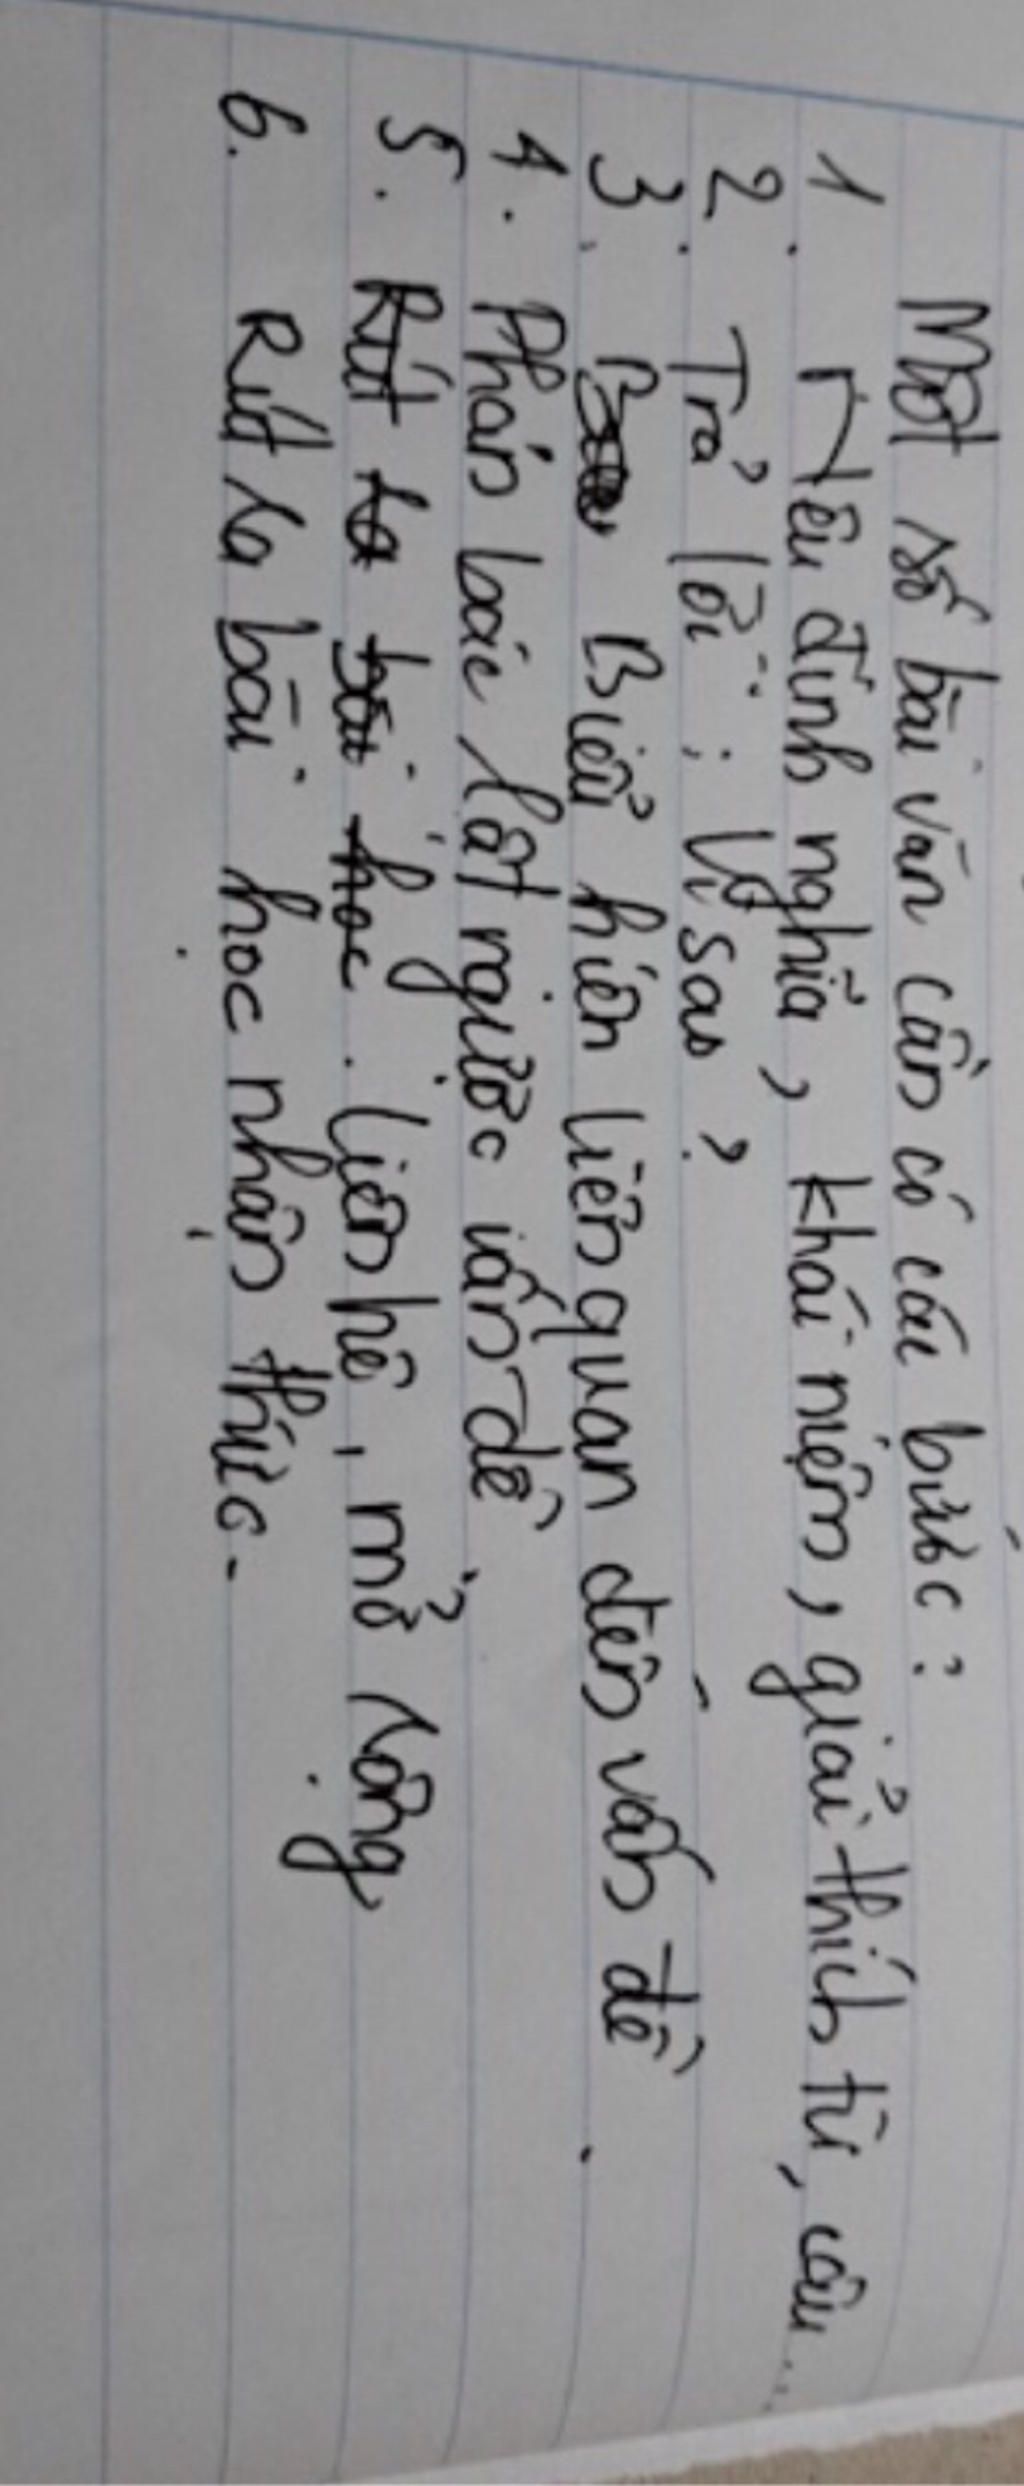 Một số bài văn cần có các bước:
1. Nêu định nghĩa, khái niệm, giải thích từ, câu...
2. Trả lời: Vì sao?
3. Biểu hiện liên quan đến vấn đề.
4. Phản bác lật ngược vấn đề
5. Rút ra bài học. Liên hệ, mở rộng
6. Rút ra bài học nhận thức.